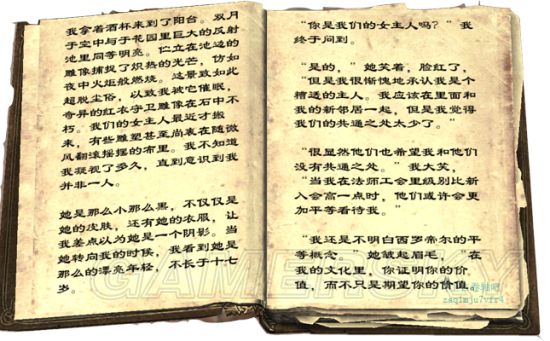 我拿着酒杯来到了阳台。双月
于空中与于花园里巨大的反射
池里同等明亮。伫立在池边的
雕像捕捉了炽热的光芒，仿如
夜中火炬般燃烧。这景致如此
超脱尘俗，以致我被它催眠，
奇异的红衣守卫雕像在石中不
朽。我们的女主人最近才搬
来，有些雕塑甚至尚裹在随微
风翻滚摇摆的布里。我不知道
我凝视了多久，直到意识到我
并非一人。
她是那么小那么黑，不仅仅是
她的皮肤，还有她的衣服，让
我差点以为她是一个阴影。当
她转向我的时候，我看到她是
那么的漂亮年轻，不长于十七
岁。
“你是我们的女主人吗？”我
终于问到。
“是的，”她笑着，脸红了，
“但是我很惭愧地承认我是个
糟透的主人。我应该在里面和
我的新邻居一起，但是我觉得
我们的共通之处太少了。”
“很显然他们也希望我和他们
没有共通之处。”我大笑，
“当我在法师工会里级别比新
入会高一点时，他们或许会更
加平等看待我。”
“我还是不明白西罗帝尔的平
等概念。”她皱起眉毛，“在
我的文化里，你证明你的价
值，而不只是期望你的价值
GAMERSKY
zaqlmju7vfr4